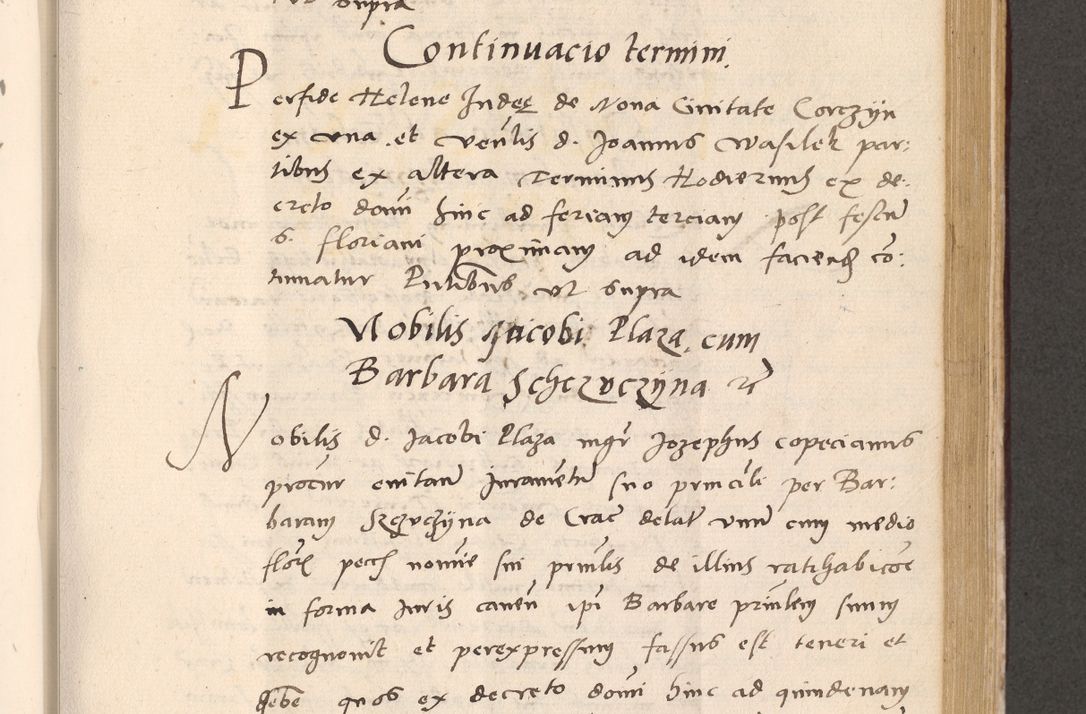 ut supra
Continuacio termini
Perfide Helene Indeę de Nona Civitate Corczyn
ex una et venlis d. Joannis Wasilek par:
tibus ex altera Terminus Hodiernus ex de:
creto domi hinc ad feriam terciam post festum
S. Floriani proximam ad idem faciend co:
tinuatur Pntibus ut supra
Nobilis Jacobi Plaza cum
Barbara Schczvczyna rc
Nobilis d. Jacobi Plaza mgr Jozephus copecianus
procur evitan Juramentum suo princili per Bar:
baram Szczvczyna de Crac delat unum cum medio
floren pecc nomine sui prinlis de illius ratihabicoe
in forma Juris caven ipi Barbare prinlem suum
recognovit et perexpressum fassus est teneri et
debe quos ex decreto domi hinc ad quindenam